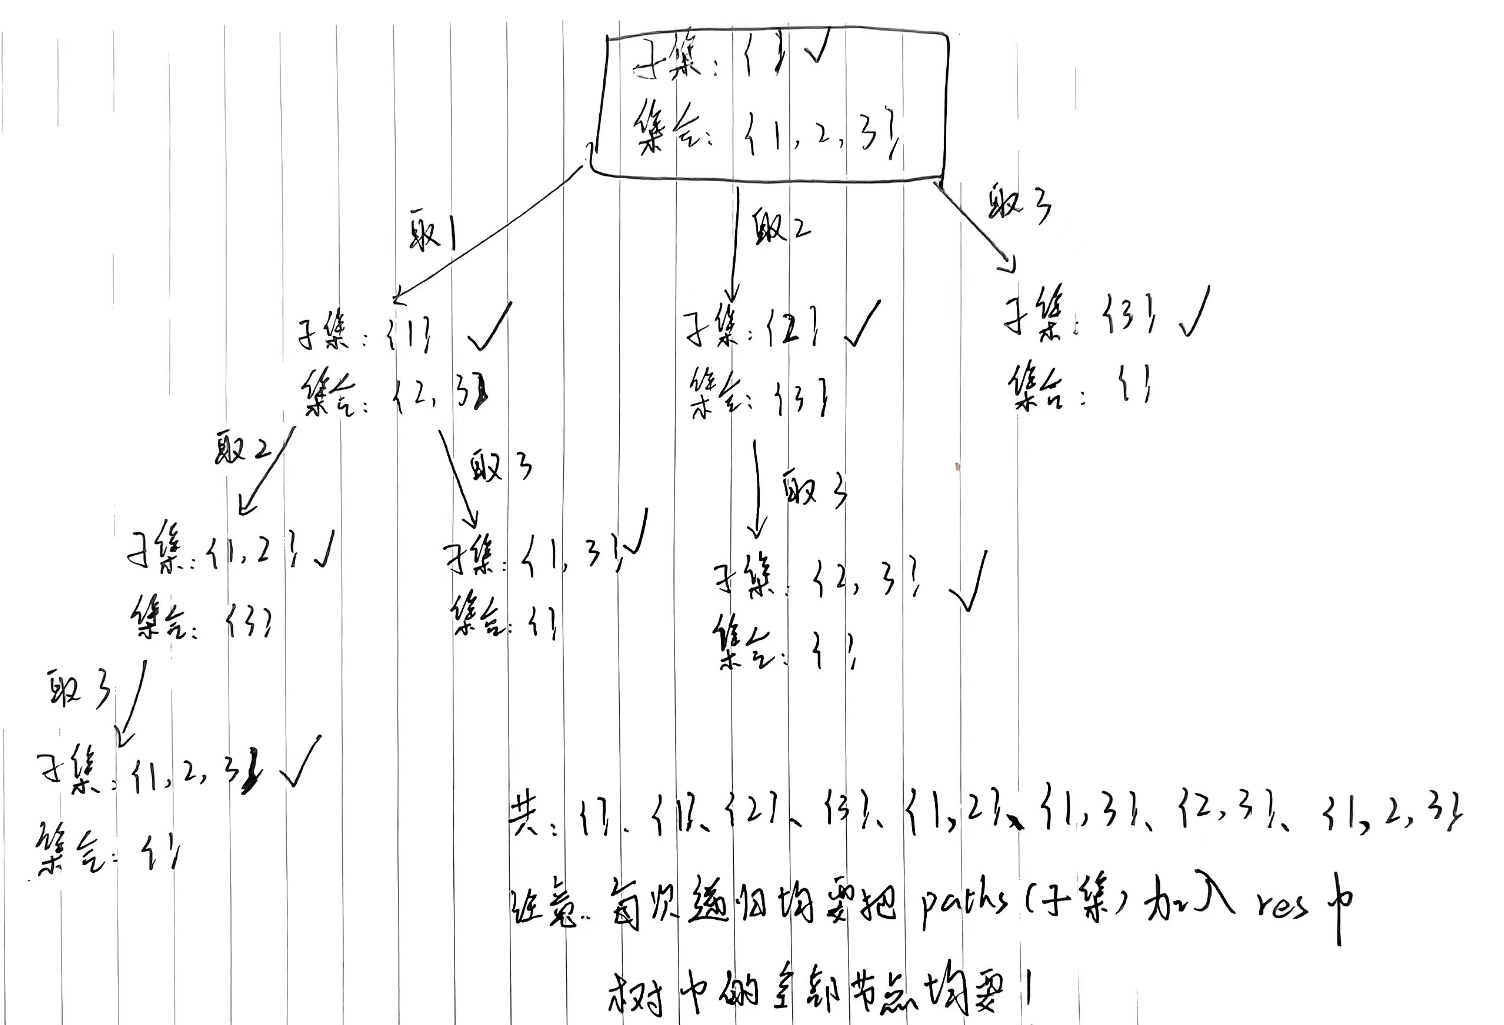 子集：{ } ✓
集合：{1, 2, 3}
取1
取2
取3
子集：{1} ✓
集合：{2, 3}
子集：{2} ✓
集合：{3}
子集：{3} ✓
集合：{ }
取2
取3
取3
子集：{1, 2} ✓
集合：{3}
子集：{1, 3} ✓
集合：{ }
子集：{2, 3} ✓
集合：{ }
取3
子集：{1, 2, 3} ✓
集合：{ }
共：{ }、{1}、{2}、{3}、{1, 2}、{1, 3}、{2, 3}、{1, 2, 3}
注意：每次递归均要把 paths (子集) 加入 res 中
树中的全部节点均要！